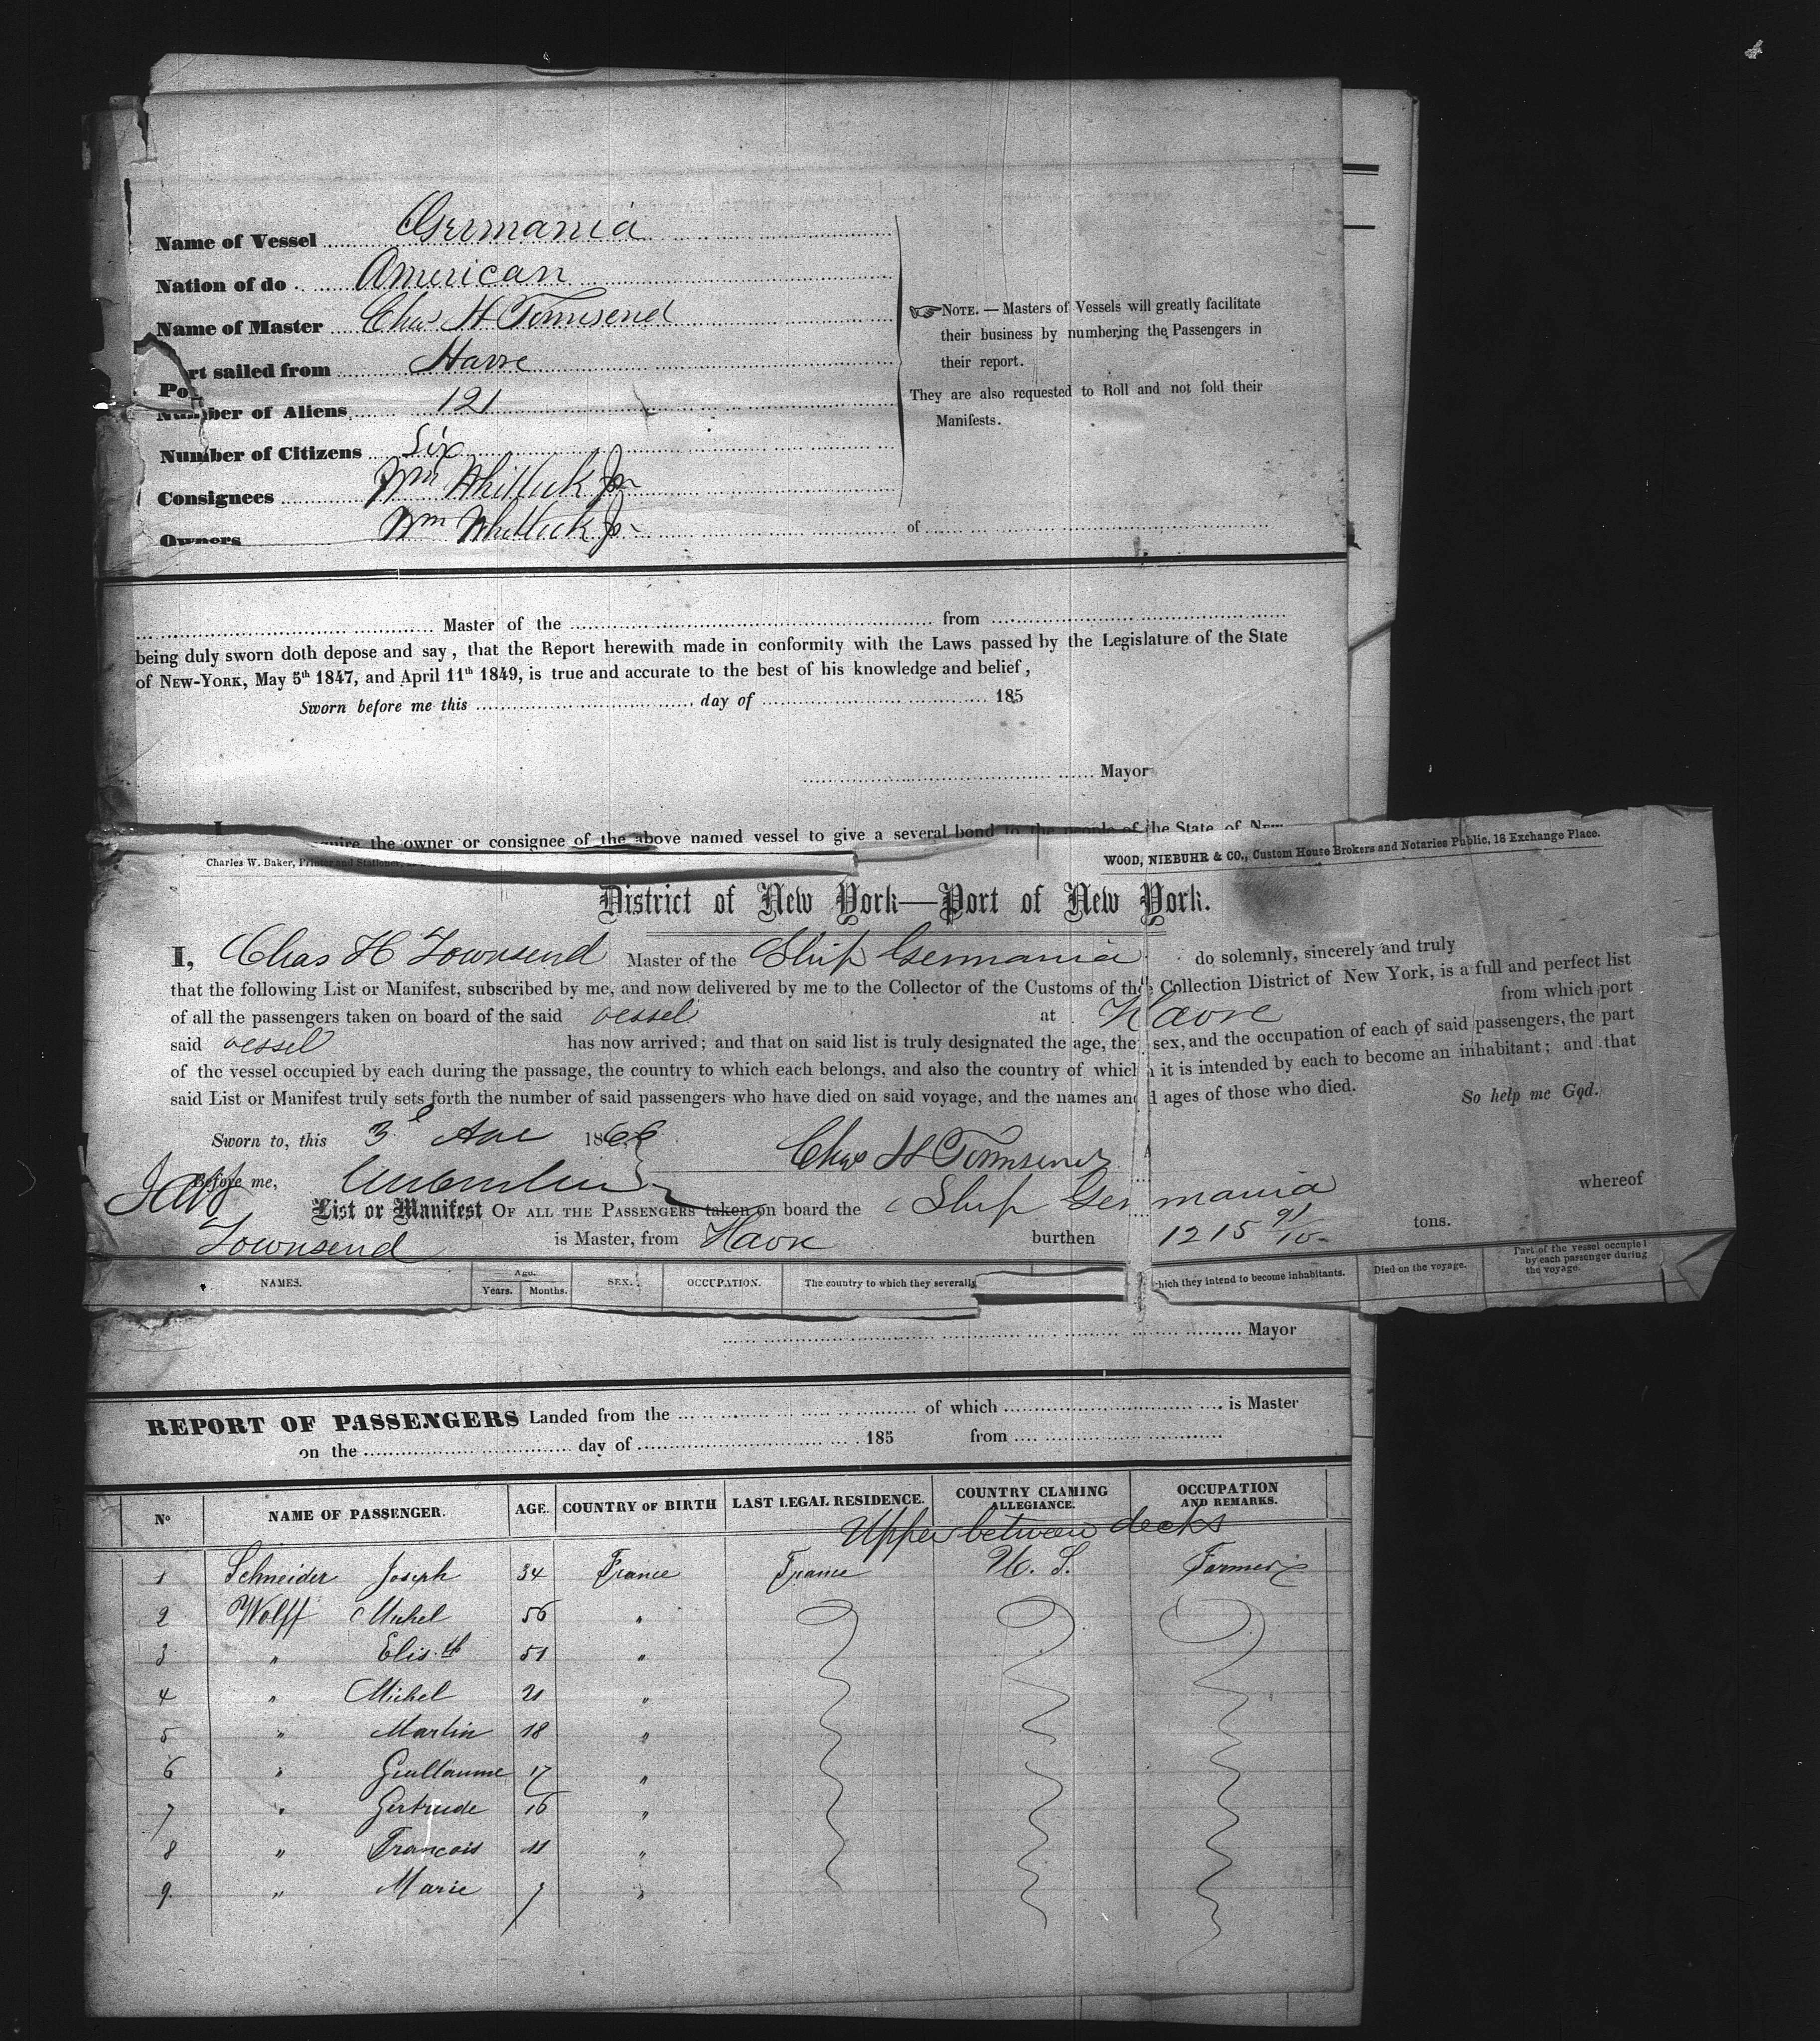 Name of Vessel Germania
Nation of do American
Name of Master Chas H Townsend
Port sailed from Havre
Number of Aliens 121
Number of Citizens Six
Consignees Wm Whitlock Jr
Owners Wm Whitlock Jr of
NOTE. — Masters of Vessels will greatly facilitate
their business by numbering the Passengers in
their report.
They are also requested to Roll and not fold their
Manifests.
Master of the from
being duly sworn doth depose and say, that the Report herewith made in conformity with the Laws passed by the Legislature of the State
of NEW-YORK, May 5th 1847, and April 11th 1849, is true and accurate to the best of his knowledge and belief,
Sworn before me this day of 185
Mayor
the owner or consignee of the above named vessel to give a several bond to the people of the State of New
Charles W. Baker, Printer and Stationer,
WOOD, NIEBUHR & CO., Custom House Brokers and Notaries Public, 18 Exchange Place.
District of New York—Port of New York.
I, Chas H Townsend Master of the Ship Germania do solemnly, sincerely and truly
that the following List or Manifest, subscribed by me, and now delivered by me to the Collector of the Customs of the Collection District of New York, is a full and perfect list
of all the passengers taken on board of the said vessel at Havre from which port
said vessel has now arrived; and that on said list is truly designated the age, the sex, and the occupation of each of said passengers, the part
of the vessel occupied by each during the passage, the country to which each belongs, and also the country of which it is intended by each to become an inhabitant; and that
said List or Manifest truly sets forth the number of said passengers who have died on said voyage, and the names and ages of those who died.
So help me God.
Sworn to, this 3 1866
Chas H Townsend
Before me,
List or Manifest OF ALL THE PASSENGERS taken on board the Ship Germania whereof
Townsend is Master, from Havre burthen 1215 91/10 tons.
NAMES. Age. Years. Months. SEX. OCCUPATION. The country to which they severally which they intend to become inhabitants. Died on the voyage. Part of the vessel occupied by each passenger during the voyage.
Mayor
REPORT OF PASSENGERS Landed from the of which is Master
on the day of 185 from
No NAME OF PASSENGER. AGE. COUNTRY OF BIRTH LAST LEGAL RESIDENCE. COUNTRY CLAMING ALLEGIANCE. OCCUPATION AND REMARKS.
Upper between decks
1 Schneider Joseph 34 France France U. S. Farmer
2 Wolff Michel 56 "
3 " Elis.th 51 "
4 " Michel 21 "
5 " Martin 18 "
6 " Guillaume 17 "
7 " Gertrude 16 "
8 " Francois 11 "
9 " Marie 7 "